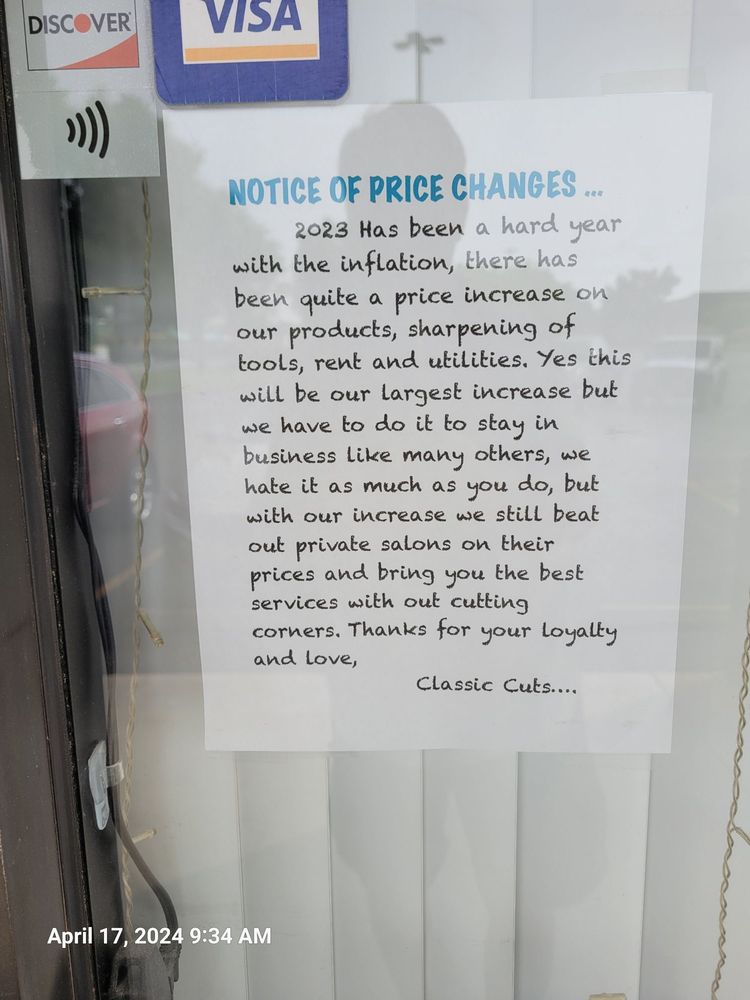 DISCOVER
VISA
NOTICE OF PRICE CHANGES ...
2023 Has been a hard year
with the inflation, there has
been quite a price increase on
our products, sharpening of
tools, rent and utilities. Yes this
will be our largest increase but
we have to do it to stay in
business like many others, we
hate it as much as you do, but
with our increase we still beat
out private salons on their
prices and bring you the best
services with out cutting
corners. Thanks for your loyalty
and love,
Classic Cuts....
April 17, 2024 9:34 AM